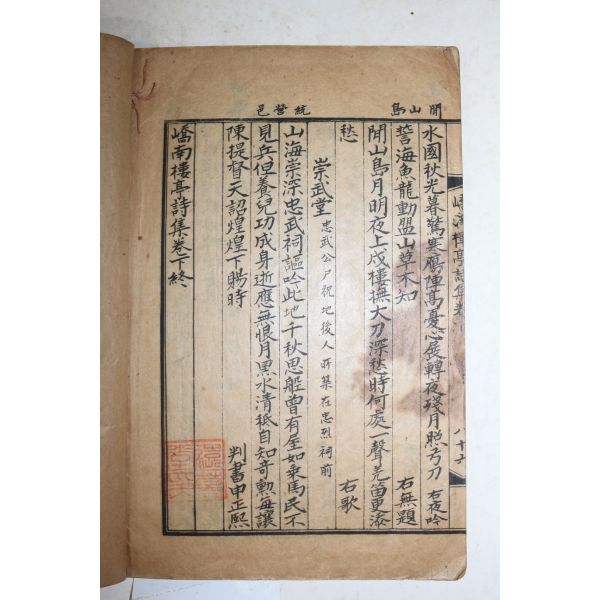 嶠南樓亭詩集卷下
八十六
閒山島
水國秋光暮驚寒鴈陣高憂心展轉夜殘月照弓刀 右夜吟
誓海魚龍動盟山草木知 右無題
閒山島月明夜上戍樓撫大刀深愁時何處一聲羌笛更添
愁 右歌
統營邑
崇武堂 忠武公尸祝地後人所築在忠烈祠前
山海崇深忠武祠謳吟此地千秋思船曾有屋如乘馬民不
見兵但養兒功成身逝應無恨月黑水清秪自知奇勳每讓
陳提督天詔煌煌下賜時 判書申正熙
嶠南樓亭詩集卷下終